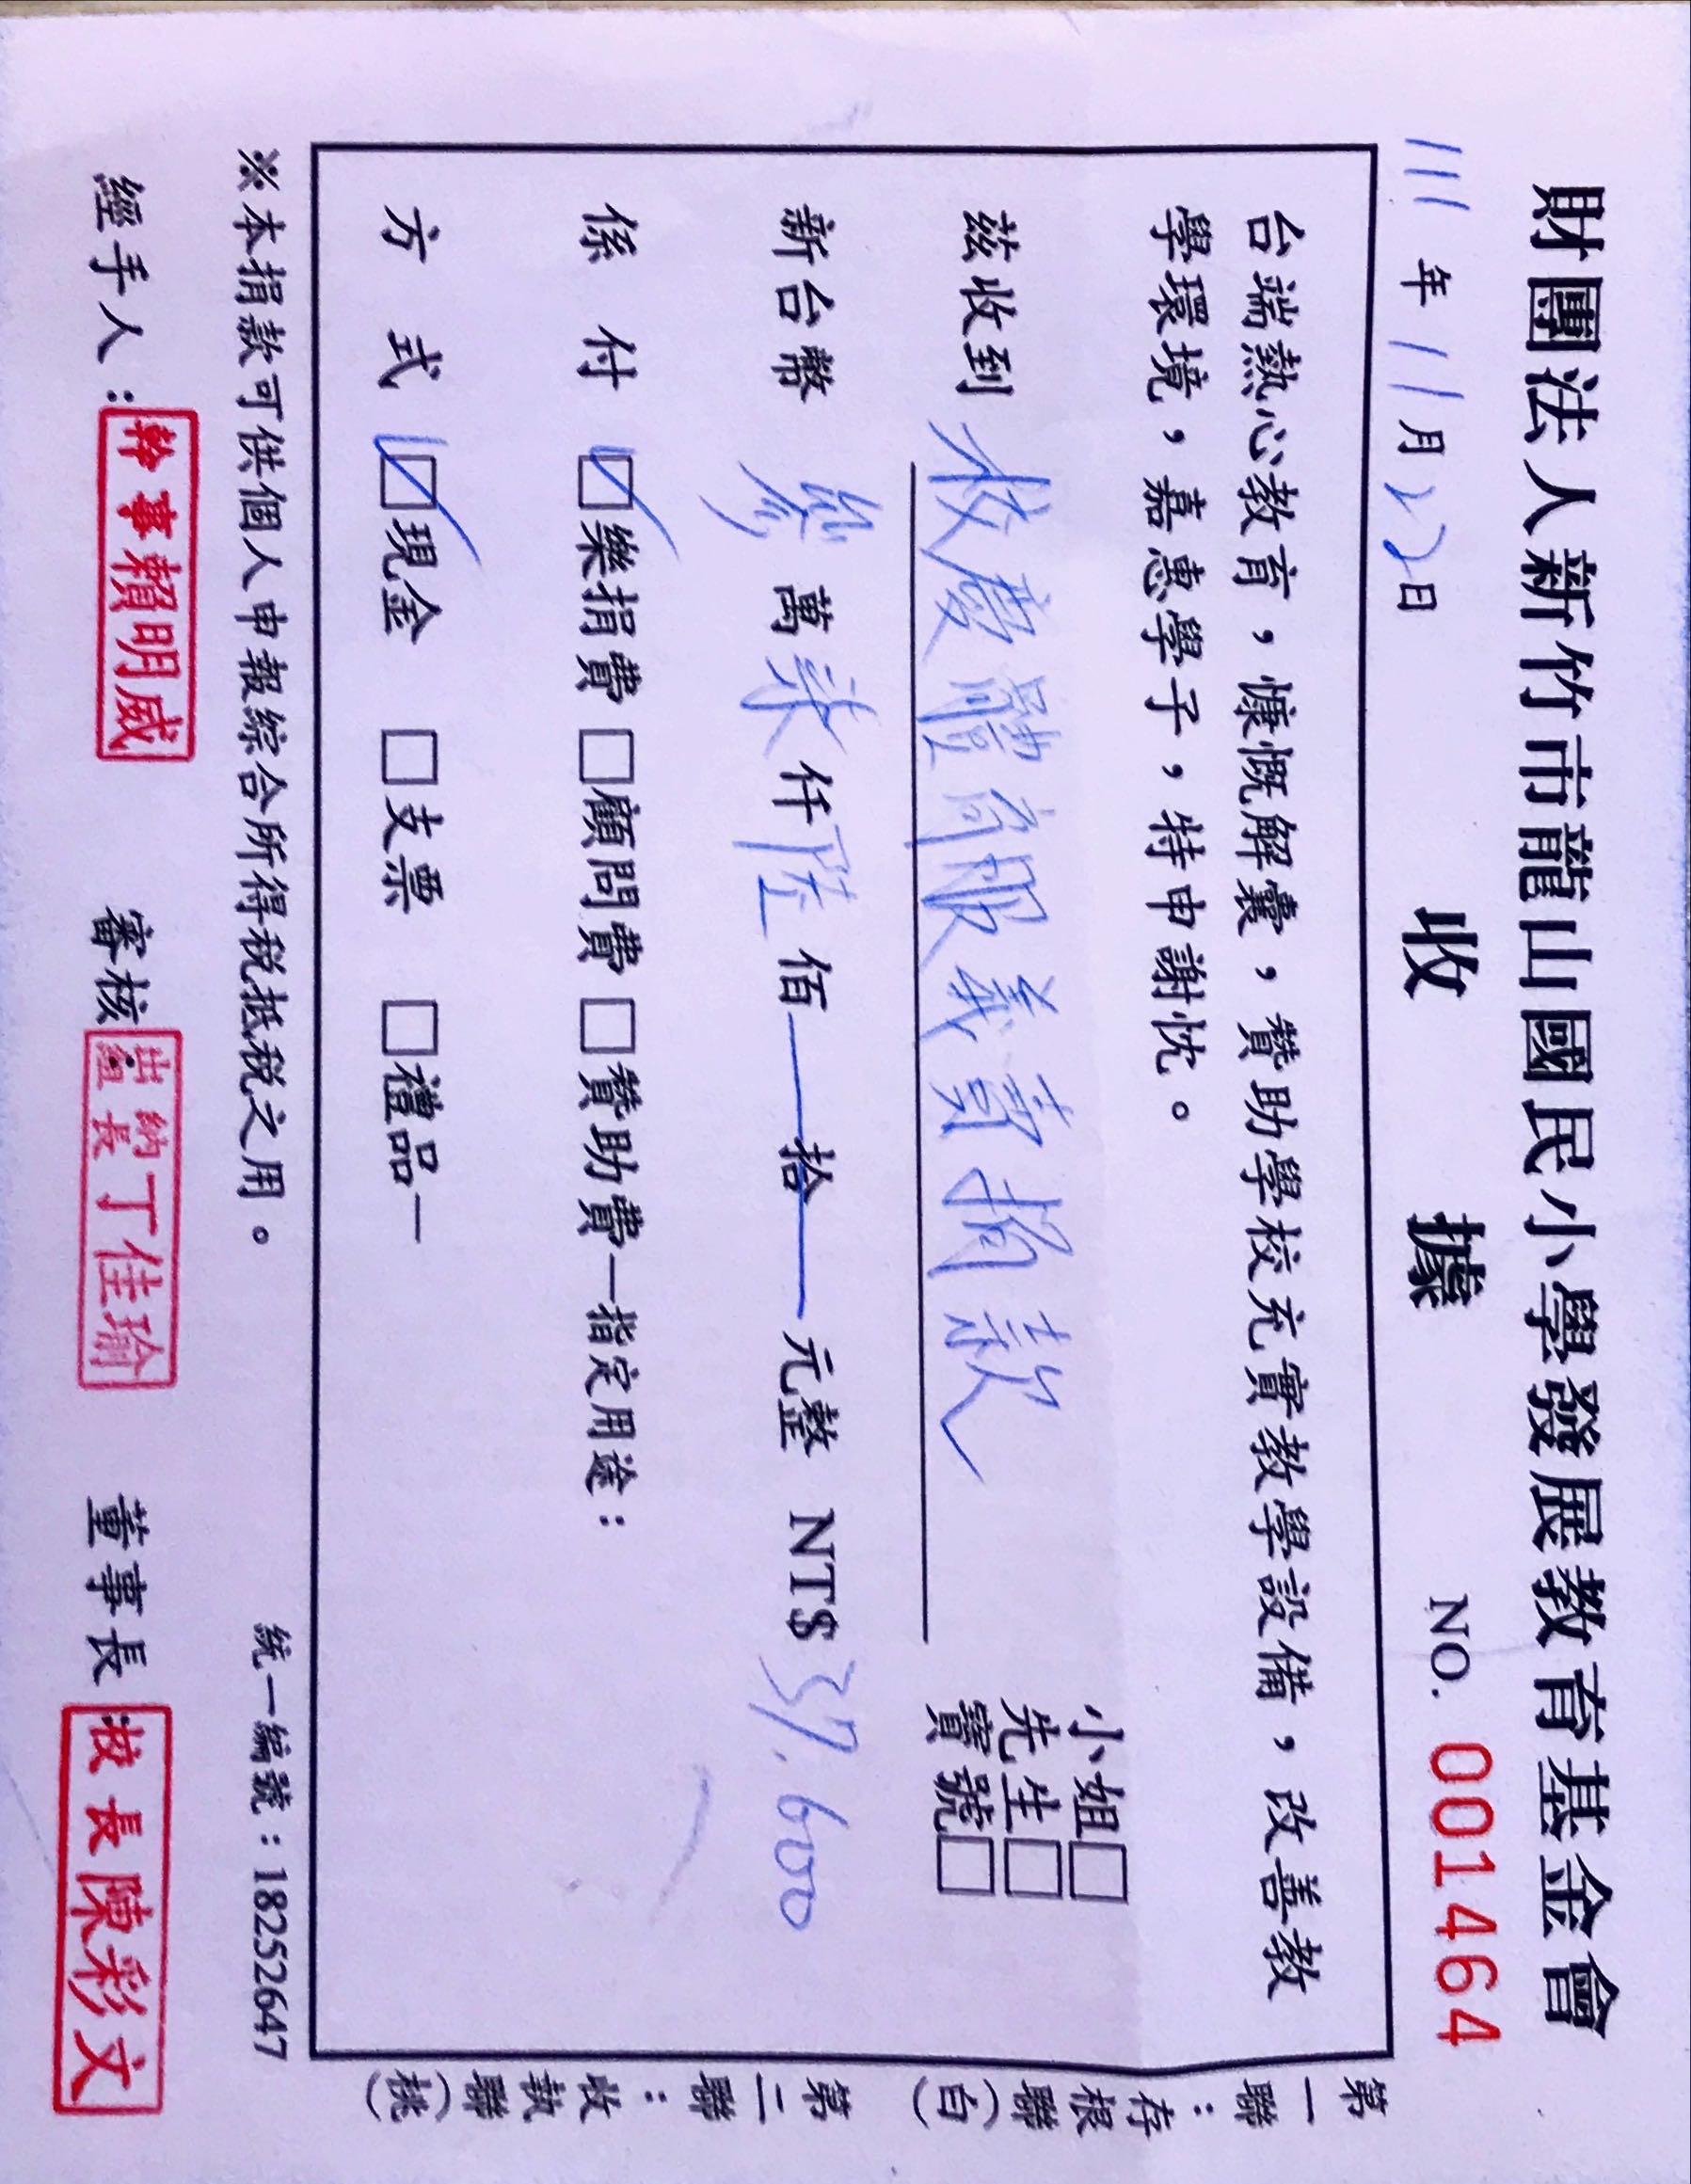 財團法人新竹市龍山國民小學發展教育基金會
收據
NO. 001464
111年11月22日
台端熱心教育，慷慨解囊，贊助學校充實教學設備，改善教
學環境，嘉惠學子，特申謝忱。
茲收到 校慶體育服義賣捐款
小姐□
先生□
寶號□
新台幣 參 萬 柒 仟 陸 佰 — 拾 — 元整 NT$ 37,600
係付 ☑樂捐費 □顧問費 □贊助費—指定用途：
方式 ☑現金 □支票 □禮品—
※本捐款可供個人申報綜合所得稅抵稅之用。
統一編號：18252647
經手人：幹事賴明威 審核 出納組長丁佳瑜 董事長 校長陳彩文
第一聯：存根聯(白)
第二聯：收執聯(桃)